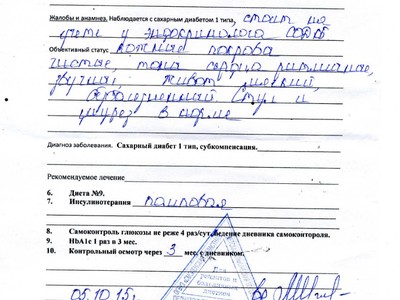 Жалобы и анамнез. Наблюдается с сахарным диабетом 1 типа, стоит на
учете у эндокринолога
Объективный статус кожные покрова
чистые, тона сердца ритмичные,
звучные, живот мягкий,
безболезненный. Стул и
диурез в норме
Диагноз заболевания. Сахарный диабет 1 тип, субкомпенсация.
Рекомендуемое лечение
6. Диета №9.
7. Инсулинотерапия помповая
8. Самоконтроль глюкозы не реже 4 раз/сут, ведение дневника самоконтроля.
9. HbA1c 1 раз в 3 мес.
10. Контрольный осмотр через 3 мес с дневником.
05.10.15г.